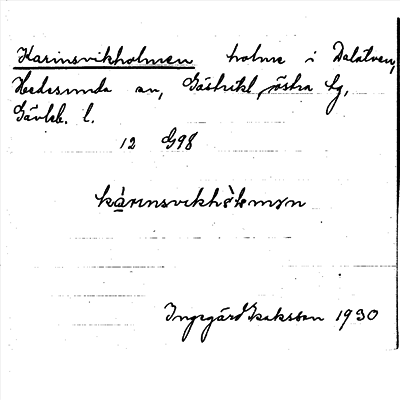 Karinsvikholmen holme i Dalälven,
Hedesunda sn, Gästrikl. östra hg,
Gävleb. l.
12 G98
kàrınsvikhòlmən
Ingegärd Isaksson 1930